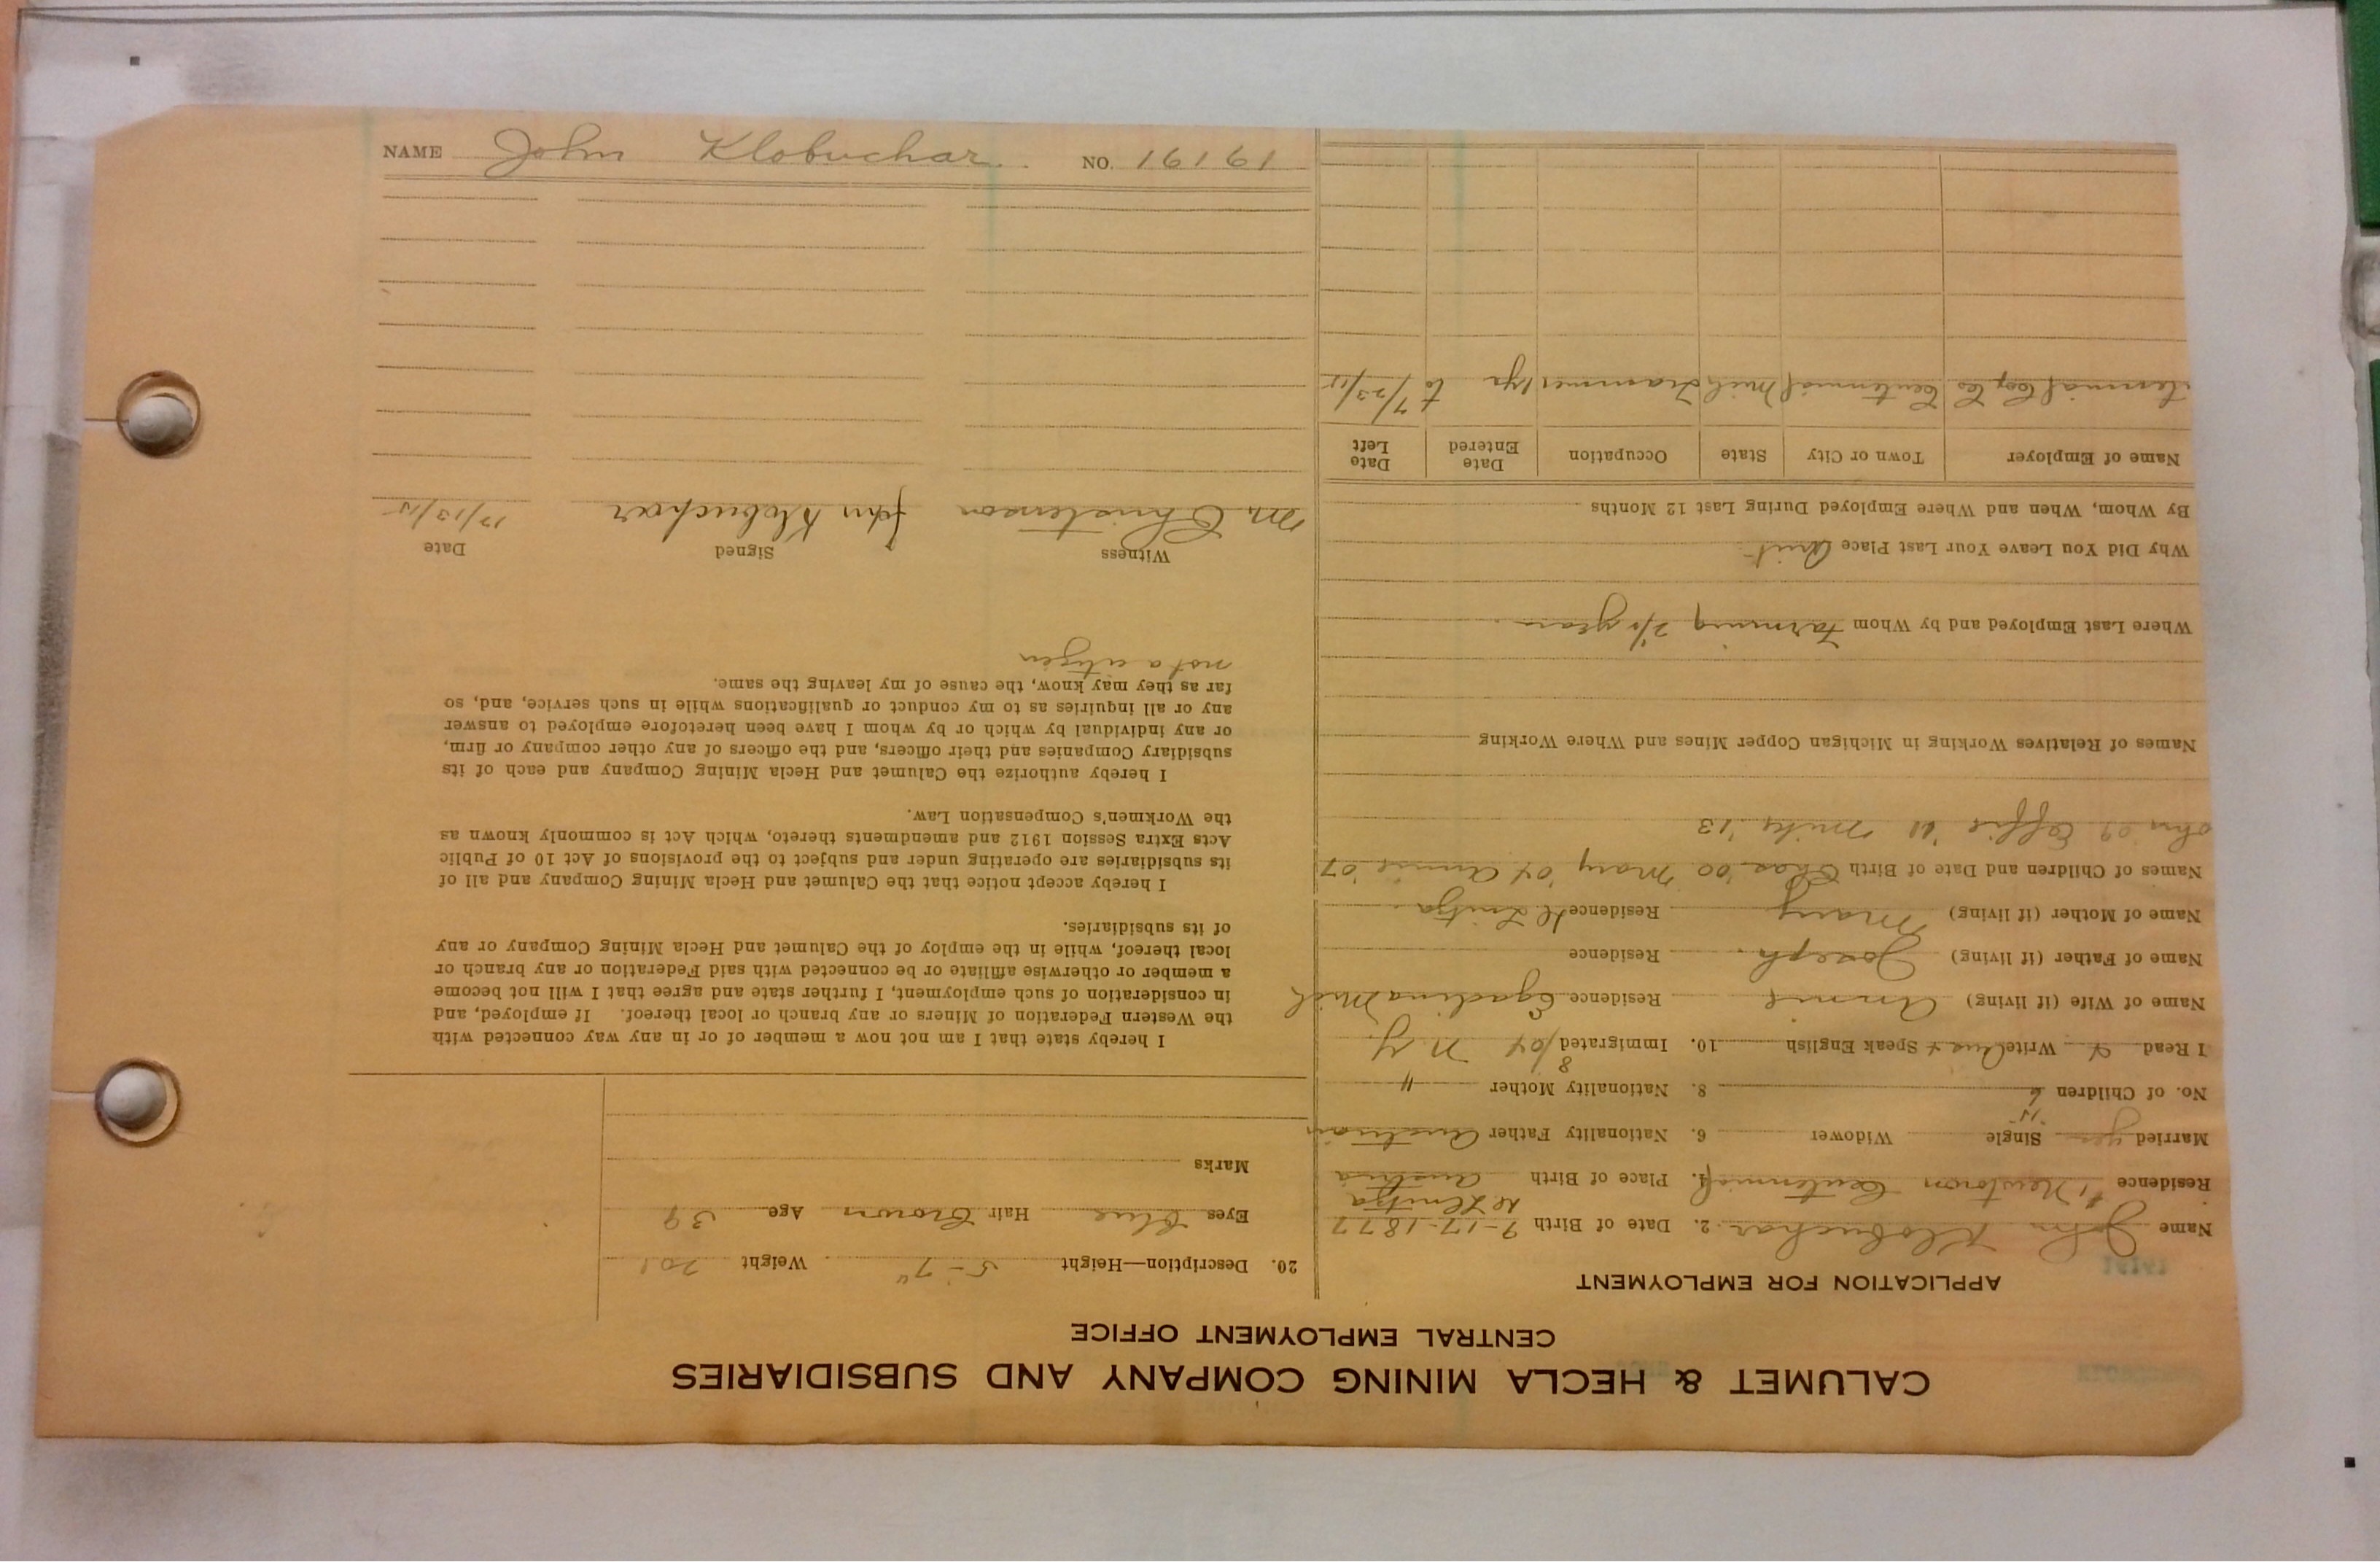 CALUMET & HECLA MINING COMPANY AND SUBSIDIARIES
CENTRAL EMPLOYMENT OFFICE
APPLICATION FOR EMPLOYMENT
19191
Name John Klobuchar 2. Date of Birth 9-17-1877
Residence #1 Newtown Centennial 4. Place of Birth Austria
Married yes Single 15 Widower 6. Nationality Father Austrian
No. of Children 6 8. Nationality Mother "
I Read & Write Aus & Speak English 10. Immigrated 8/04 N.Y.
Name of Wife (if living) Annie Residence Mich
Name of Father (if living) Joseph Residence
Name of Mother (if living) Mary Residence
Names of Children and Date of Birth Chas '00 Mary '04 Annie '07
'09 Effie '11 Mike '13
Names of Relatives Working in Michigan Copper Mines and Where Working
Where Last Employed and by Whom Farming years
Why Did You Leave Your Last Place Quit
By Whom, When and Where Employed During Last 12 Months
Name of Employer Town or City State Occupation Date Entered Date Left
Cop Co Centennial Mich Trammer 1 yr to 7/23/15
20. Description—Height 5-7" Weight 201
Eyes Blue Hair Brown Age 39
Marks
I hereby state that I am not now a member of or in any way connected with
the Western Federation of Miners or any branch or local thereof. If employed, and
in consideration of such employment, I further state and agree that I will not become
a member or otherwise affiliate or be connected with said Federation or any branch or
local thereof, while in the employ of the Calumet and Hecla Mining Company or any
of its subsidiaries.
I hereby accept notice that the Calumet and Hecla Mining Company and all of
its subsidiaries are operating under and subject to the provisions of Act 10 of Public
Acts Extra Session 1912 and amendments thereto, which Act is commonly known as
the Workmen's Compensation Law.
I hereby authorize the Calumet and Hecla Mining Company and each of its
subsidiary Companies and their officers, and the officers of any other company or firm,
or any individual by which or by whom I have been heretofore employed to answer
any or all inquiries as to my conduct or qualifications while in such service, and, so
far as they may know, the cause of my leaving the same.
not a citizen
Witness Signed Date
M. Christenson John Klobuchar 12/13/15
NAME John Klobuchar NO. 19191